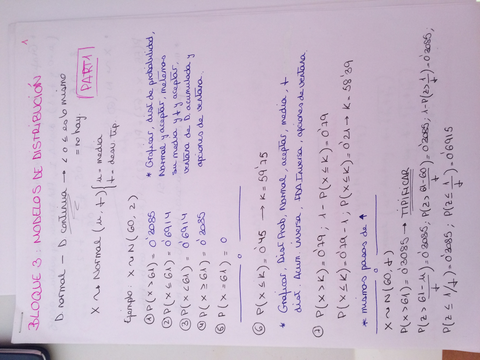 1
BLOQUE 3: MODELOS DE DISTRIBUCIÓN
D normal — D continua → < o ≤ es lo mismo
= no hay
PARTE 1
X ~> Normal (μ, σ) | μ = media
| σ = desv. tip
Ejemplo: X ~> N (60, 2)
① P(X > 61) = 0'3085
② P(X ≤ 61) = 0'6914
③ P(X < 61) = 0'6914
④ P(X ≥ 61) = 0'3085
⑤ P(X = 61) = 0
* Graficar, dist de probabilidad,
Normal y aceptar, metemos
su media y σ y aceptar,
ventana de D acumulada y
opciones de ventana.
⑥ P(X ≤ K) = 0'45 → K = 59'75
* Graficar, Dist Prob, Normal, aceptar, media, σ
dist. Acum inversa, FDA Inversa, opciones de ventana
⑦ P(X > K) = 0'79; 1 - P(X ≤ K) = 0'79
P(X ≤ K) = 0'79 - 1; P(X ≤ K) = 0'21 → K = 58'39
* mismos pasos de ↑
X ~> N (60, σ)
P(X > 61) = 0'3085 → TIPIFICAR
P(Z > 61 - μ / σ) = 0'3085; P(Z > 61 - 60 / σ) = 0'3085; 1 - P(Z ≤ 1/σ) = 0'3085;
P(Z ≤ 1/σ) = 0'3085; P(Z ≤ 1/σ) = 0'6915